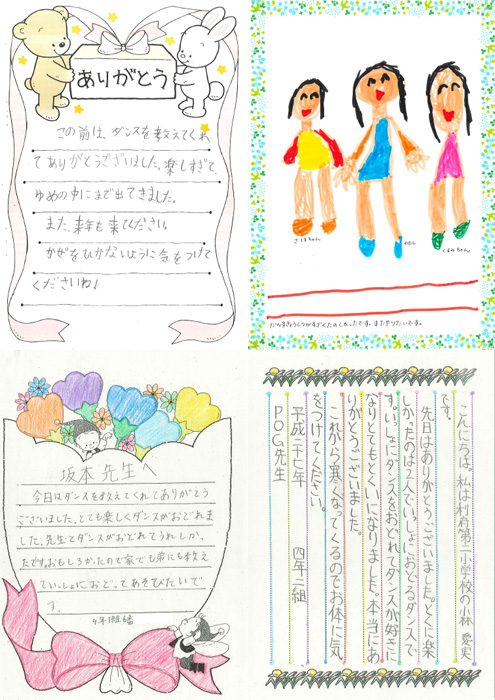 ありがとう
この前は、ダンスを教えてくれ
てありがとうございました。楽しすぎて、
ゆめの中にまで出てきました。
また、来年も来てください。
かぜをひかないように気をつけて
くださいね!
さほちゃん
くるみちゃん
だんすきょうしつがすごくたのしかったです。またやりたいです。
坂本先生へ
今日はダンスを教えてくれてありがとう
ございました。とても楽しくダンスがおどれま
した。先生とダンスがおどれてうれしか
たです。おもしろかったので家でも弟にも教え
ていっしょにおどってあそびたいで
す。
こんにちは。私は利府第二小学校の小林 愛実
です。
先日はありがとうございました。とくに楽し
かったのは2人でいっしょにおどるダンスで
す。いっしょにダンスをおどれてダンスが好きに
なりとてもとくいになりました。本当にあ
りがとうございました。
これから寒くなってくるのでお体に気
をつけてください。
平成二十七年 四年二組
POG先生